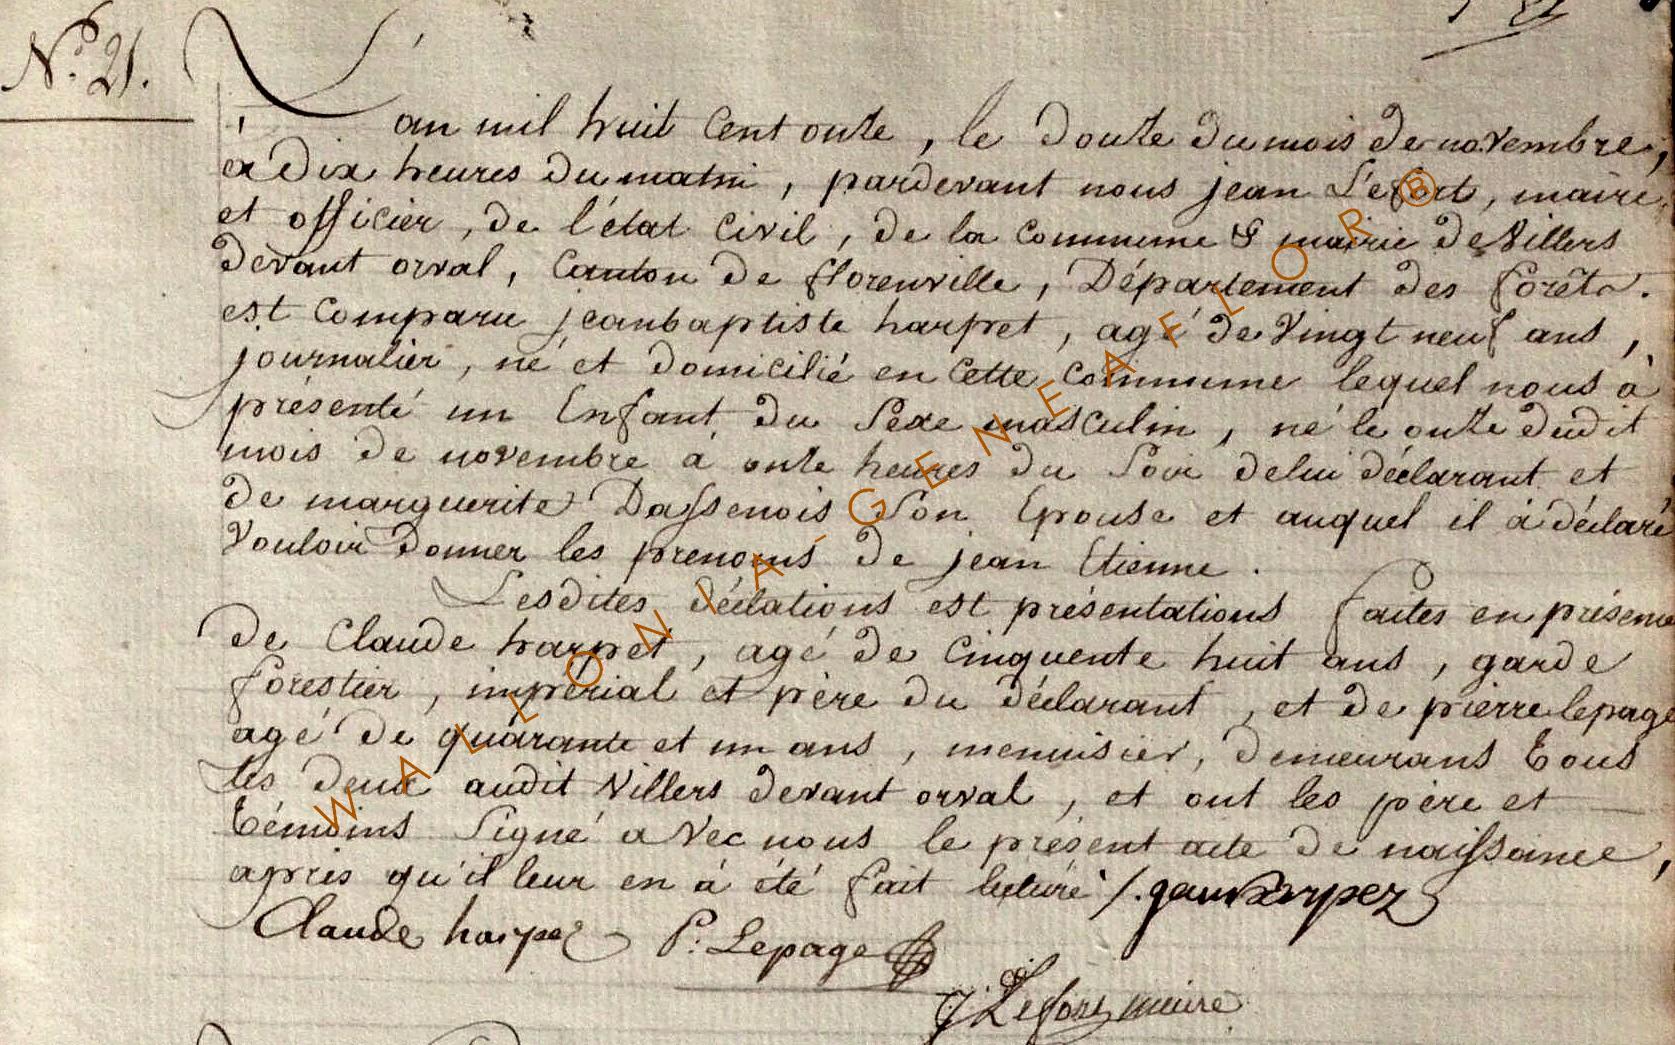 N.° 21.
L'an mil huit cent onze, le douze du mois de novembre,
à dix heures du matin, pardevant nous jean Lefort, maire
et officier, de l'état civil, de la commune & mairie de Villers
devant orval, Canton de florenville, Département des forêts.
est comparu jeanbaptiste harpet, agé de vingt neuf ans,
journalier, né et domicilié en cette commune lequel nous à
présenté un Enfant du sexe masculin, né le onze dudit
mois de novembre à onze heures du soir de lui déclarant et
de marguerite Dassenois son Epouse et auquel il à déclaré
vouloir donner les prenoms de jean Etienne.
Lesdites déclations est présentations faites en présence
de Claude harpet, agé de cinquente huit ans, garde
forestier, impérial et père du déclarant, et de pierre lepage
agé de quarante et un ans, menuisier, demeurans tous
les deux audit Villers devant orval, et ont les père et
témoins signé avec nous le présent acte de naissance,
après qu'il leur en à été fait lecture /. jean harpez
Claude harpez P. Lepage
J. Lefort maire
WALLONIA-GENEAFLOR®